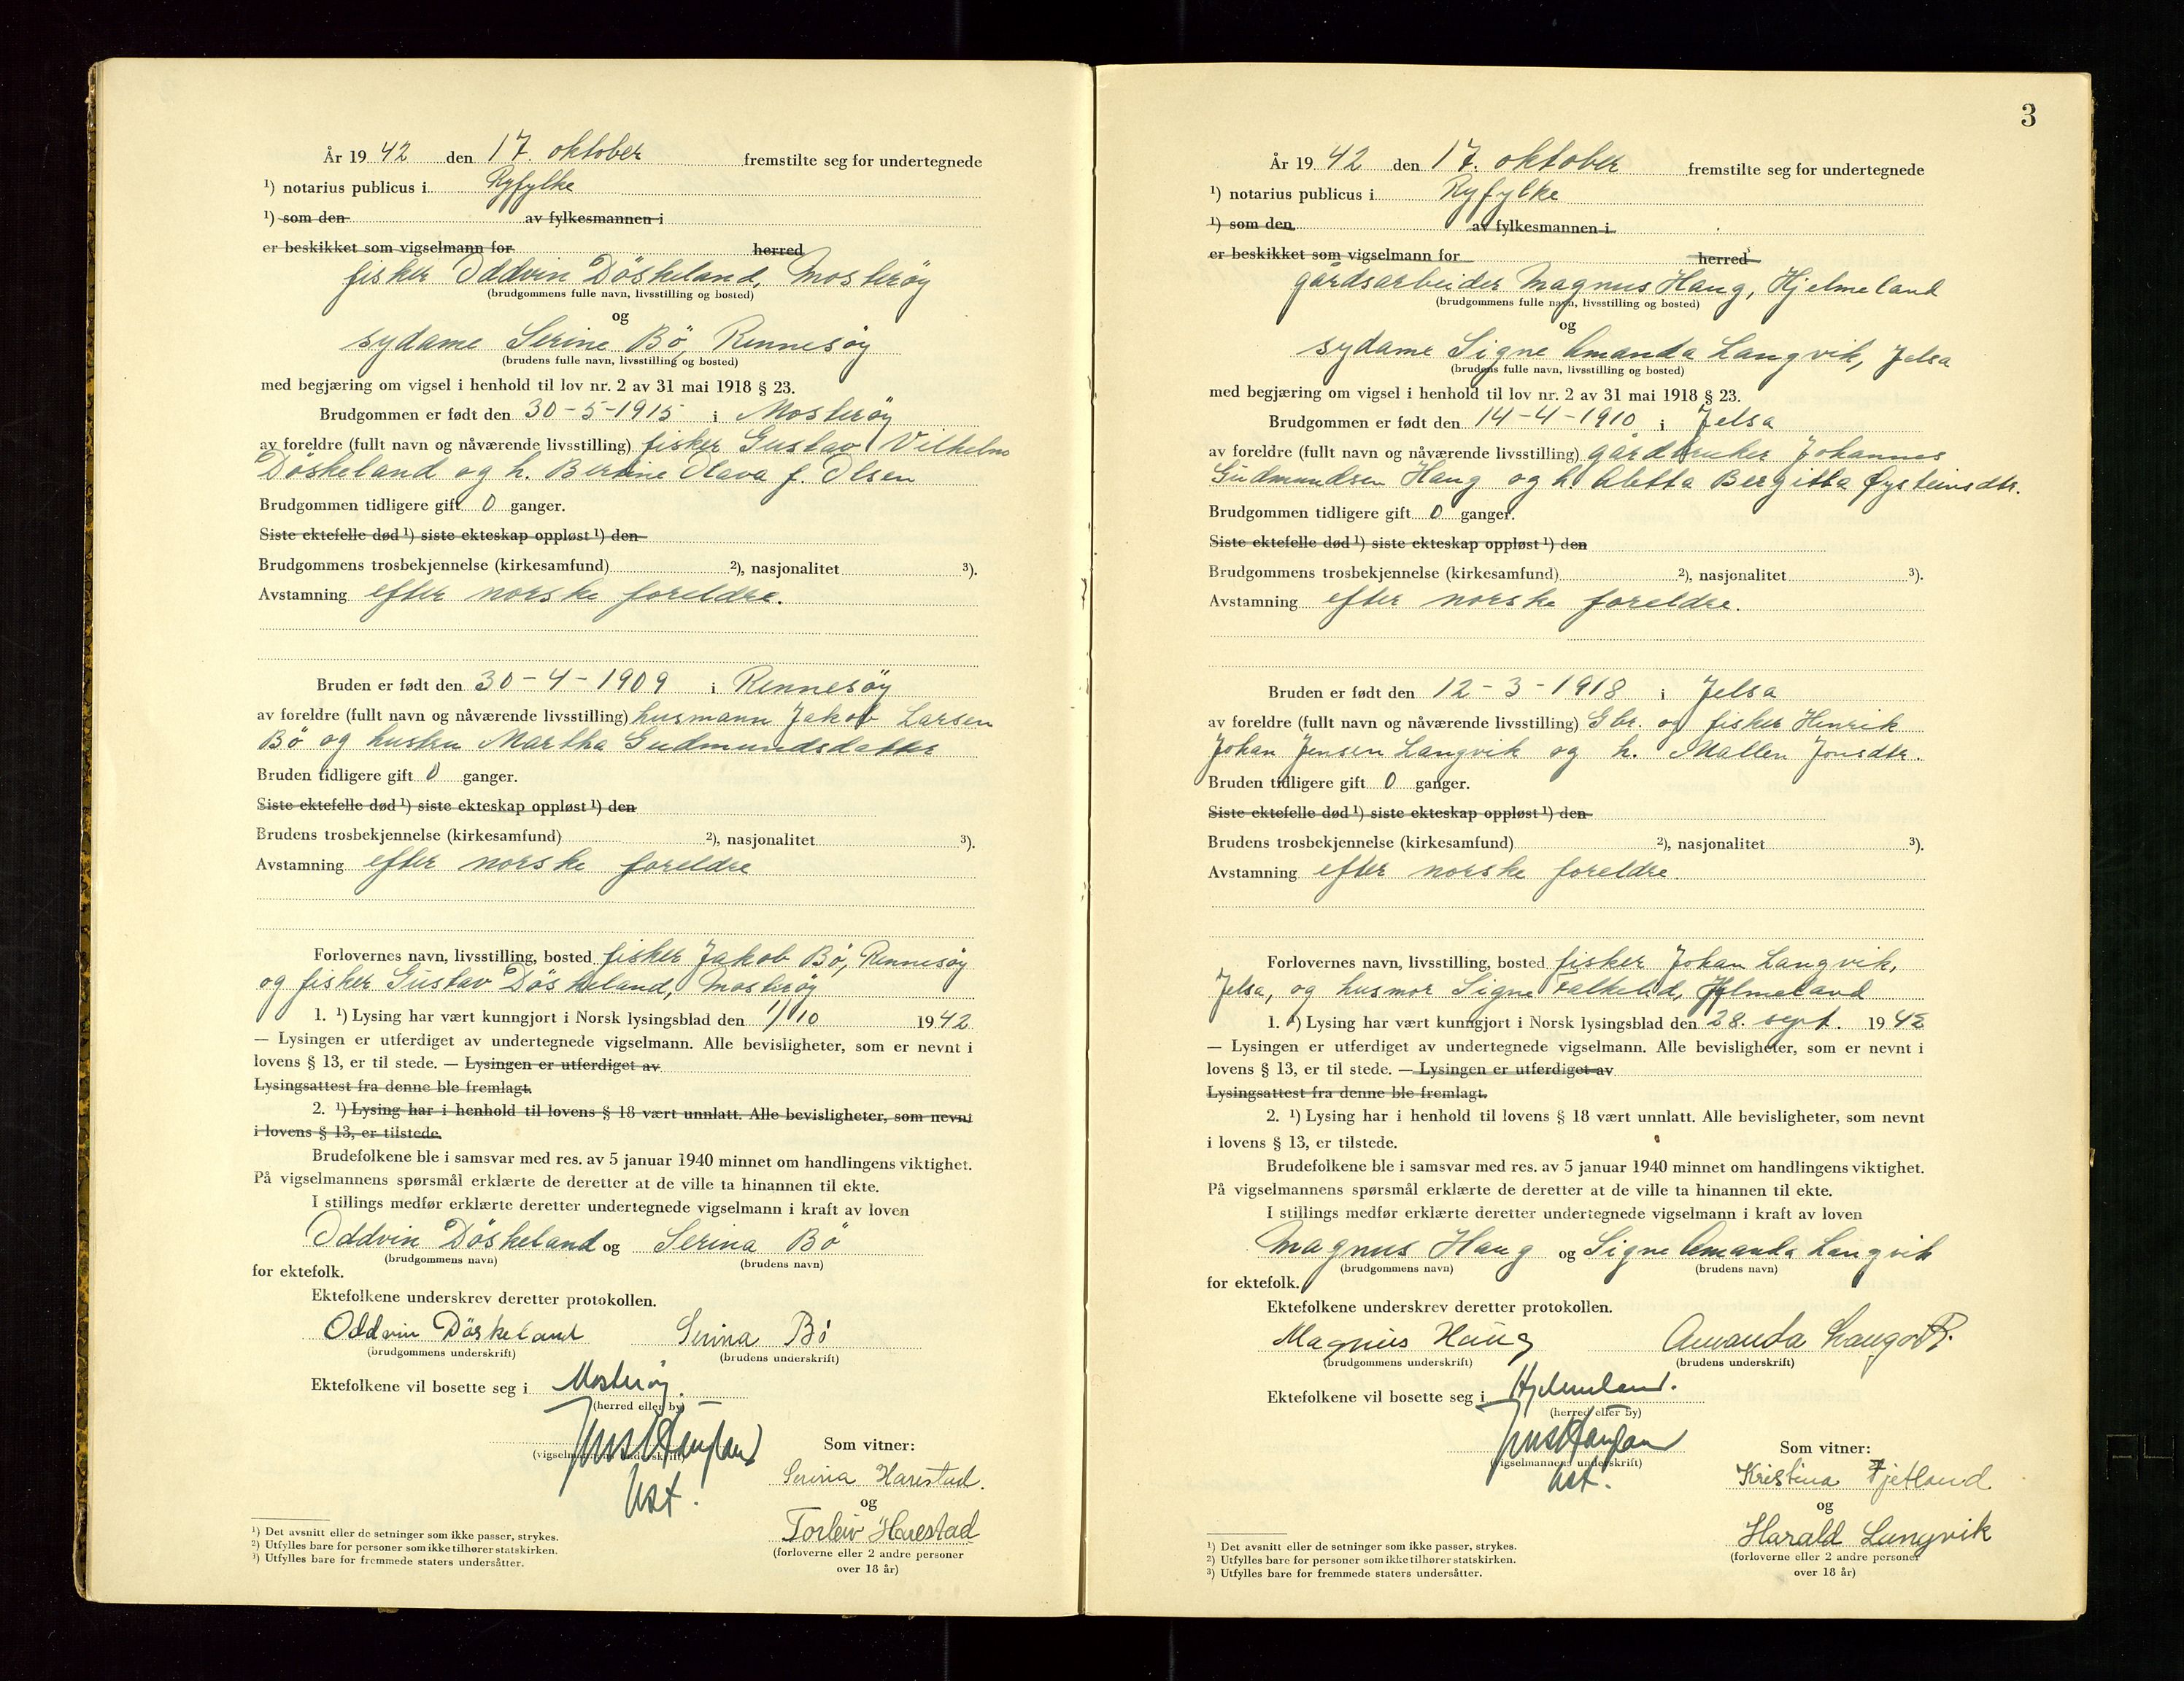 År 1942 den 17. oktober fremstilte seg for undertegnede
¹) notarius publicus i Ryfylke
¹) som den av fylkesmannen i
er beskikket som vigselmann for herred
fisker Oddvin Döskeland, Mosteröy
(brudgommens fulle navn, livsstilling og bosted)
og
sydame Serine Bö, Rennesöy
(brudens fulle navn, livsstilling og bosted)
med begjæring om vigsel i henhold til lov nr. 2 av 31 mai 1918 § 23.
Brudgommen er født den 30-5-1915 i Mosteröy
av foreldre (fullt navn og nåværende livsstilling) fisker Gustav Vilhelm
Döskeland og h. Bertine Olava f. Olsen
Brudgommen tidligere gift 0 ganger.
Siste ektefelle død ¹) siste ekteskap oppløst ¹) den
Brudgommens trosbekjennelse (kirkesamfund) ²), nasjonalitet ³).
Avstamning efter norske foreldre.
Bruden er født den 30-4-1909 i Rennesöy
av foreldre (fullt navn og nåværende livsstilling) husmann Jakob Larsen
Bö og hustru Martha Gudmundsdatter
Bruden tidligere gift 0 ganger.
Siste ektefelle død ¹) siste ekteskap oppløst ¹) den
Brudens trosbekjennelse (kirkesamfund) ²), nasjonalitet ³).
Avstamning efter norske foreldre
Forlovernes navn, livsstilling, bosted fisker Jakob Bö, Rennesöy
og fisker Gustav Döskeland, Mosteröy
1. ¹) Lysing har vært kunngjort i Norsk lysingsblad den 1/10 1942
— Lysingen er utferdiget av undertegnede vigselmann. Alle bevisligheter, som er nevnt i
lovens § 13, er til stede. — Lysingen er utferdiget av
Lysingsattest fra denne ble fremlagt.
2. ¹) Lysing har i henhold til lovens § 18 vært unnlatt. Alle bevisligheter, som nevnt
i lovens § 13, er tilstede.
Brudefolkene ble i samsvar med res. av 5 januar 1940 minnet om handlingens viktighet.
På vigselmannens spørsmål erklærte de deretter at de ville ta hinannen til ekte.
I stillings medfør erklærte deretter undertegnede vigselmann i kraft av loven
Oddvin Döskeland og Serina Bö
(brudgommens navn) (brudens navn)
for ektefolk.
Ektefolkene underskrev deretter protokollen.
Oddvin Döskeland Serina Bö
(brudgommens underskrift) (brudens underskrift)
Ektefolkene vil bosette seg i Mosteröy.
(herred eller by)
(vigselmannens underskrift)
Som vitner:
Serina Harestad.
og
Torleiv Harestad
(forloverne eller 2 andre personer
over 18 år)
¹) Det avsnitt eller de setninger som ikke passer, strykes.
²) Utfylles bare for personer som ikke tilhører statskirken.
³) Utfylles bare for fremmede staters undersåtter.
3
År 1942 den 17. oktober fremstilte seg for undertegnede
¹) notarius publicus i Ryfylke
¹) som den av fylkesmannen i
er beskikket som vigselmann for herred
gårdsarbeider Magnus Haug, Hjelmeland
(brudgommens fulle navn, livsstilling og bosted)
og
sydame Signe Amanda Langvik, Jelsa
(brudens fulle navn, livsstilling og bosted)
med begjæring om vigsel i henhold til lov nr. 2 av 31 mai 1918 § 23.
Brudgommen er født den 14-4-1910 i Jelsa
av foreldre (fullt navn og nåværende livsstilling) gårdbruker Johannes
Gudmundsen Haug og h. Aletta Bergitta Øysteinsdtr.
Brudgommen tidligere gift 0 ganger.
Siste ektefelle død ¹) siste ekteskap oppløst ¹) den
Brudgommens trosbekjennelse (kirkesamfund) ²), nasjonalitet ³).
Avstamning efter norske foreldre.
Bruden er født den 12-3-1918 i Jelsa
av foreldre (fullt navn og nåværende livsstilling) Gbr. og fisker Henrik
Johan Jensen Langvik og h. Mallen Jonsdtr.
Bruden tidligere gift 0 ganger.
Siste ektefelle død ¹) siste ekteskap oppløst ¹) den
Brudens trosbekjennelse (kirkesamfund) ²), nasjonalitet ³).
Avstamning efter norske foreldre.
Forlovernes navn, livsstilling, bosted fisker Johan Langvik,
Jelsa, og husmor Signe Falkeid, Hjelmeland
1. ¹) Lysing har vært kunngjort i Norsk lysingsblad den 28. sept. 1942
— Lysingen er utferdiget av undertegnede vigselmann. Alle bevisligheter, som er nevnt i
lovens § 13, er til stede. — Lysingen er utferdiget av
Lysingsattest fra denne ble fremlagt.
2. ¹) Lysing har i henhold til lovens § 18 vært unnlatt. Alle bevisligheter, som nevnt
i lovens § 13, er tilstede.
Brudefolkene ble i samsvar med res. av 5 januar 1940 minnet om handlingens viktighet.
På vigselmannens spørsmål erklærte de deretter at de ville ta hinannen til ekte.
I stillings medfør erklærte deretter undertegnede vigselmann i kraft av loven
Magnus Haug og Signe Amanda Langvik
(brudgommens navn) (brudens navn)
for ektefolk.
Ektefolkene underskrev deretter protokollen.
Magnus Haug Amanda Langvik.
(brudgommens underskrift) (brudens underskrift)
Ektefolkene vil bosette seg i Hjelmeland.
(herred eller by)
(vigselmannens underskrift)
Som vitner:
Kristina Fjetland
og
Harald Langvik
(forloverne eller 2 andre personer
over 18 år)
¹) Det avsnitt eller de setninger som ikke passer, strykes.
²) Utfylles bare for personer som ikke tilhører statskirken.
³) Utfylles bare for fremmede staters undersåtter.